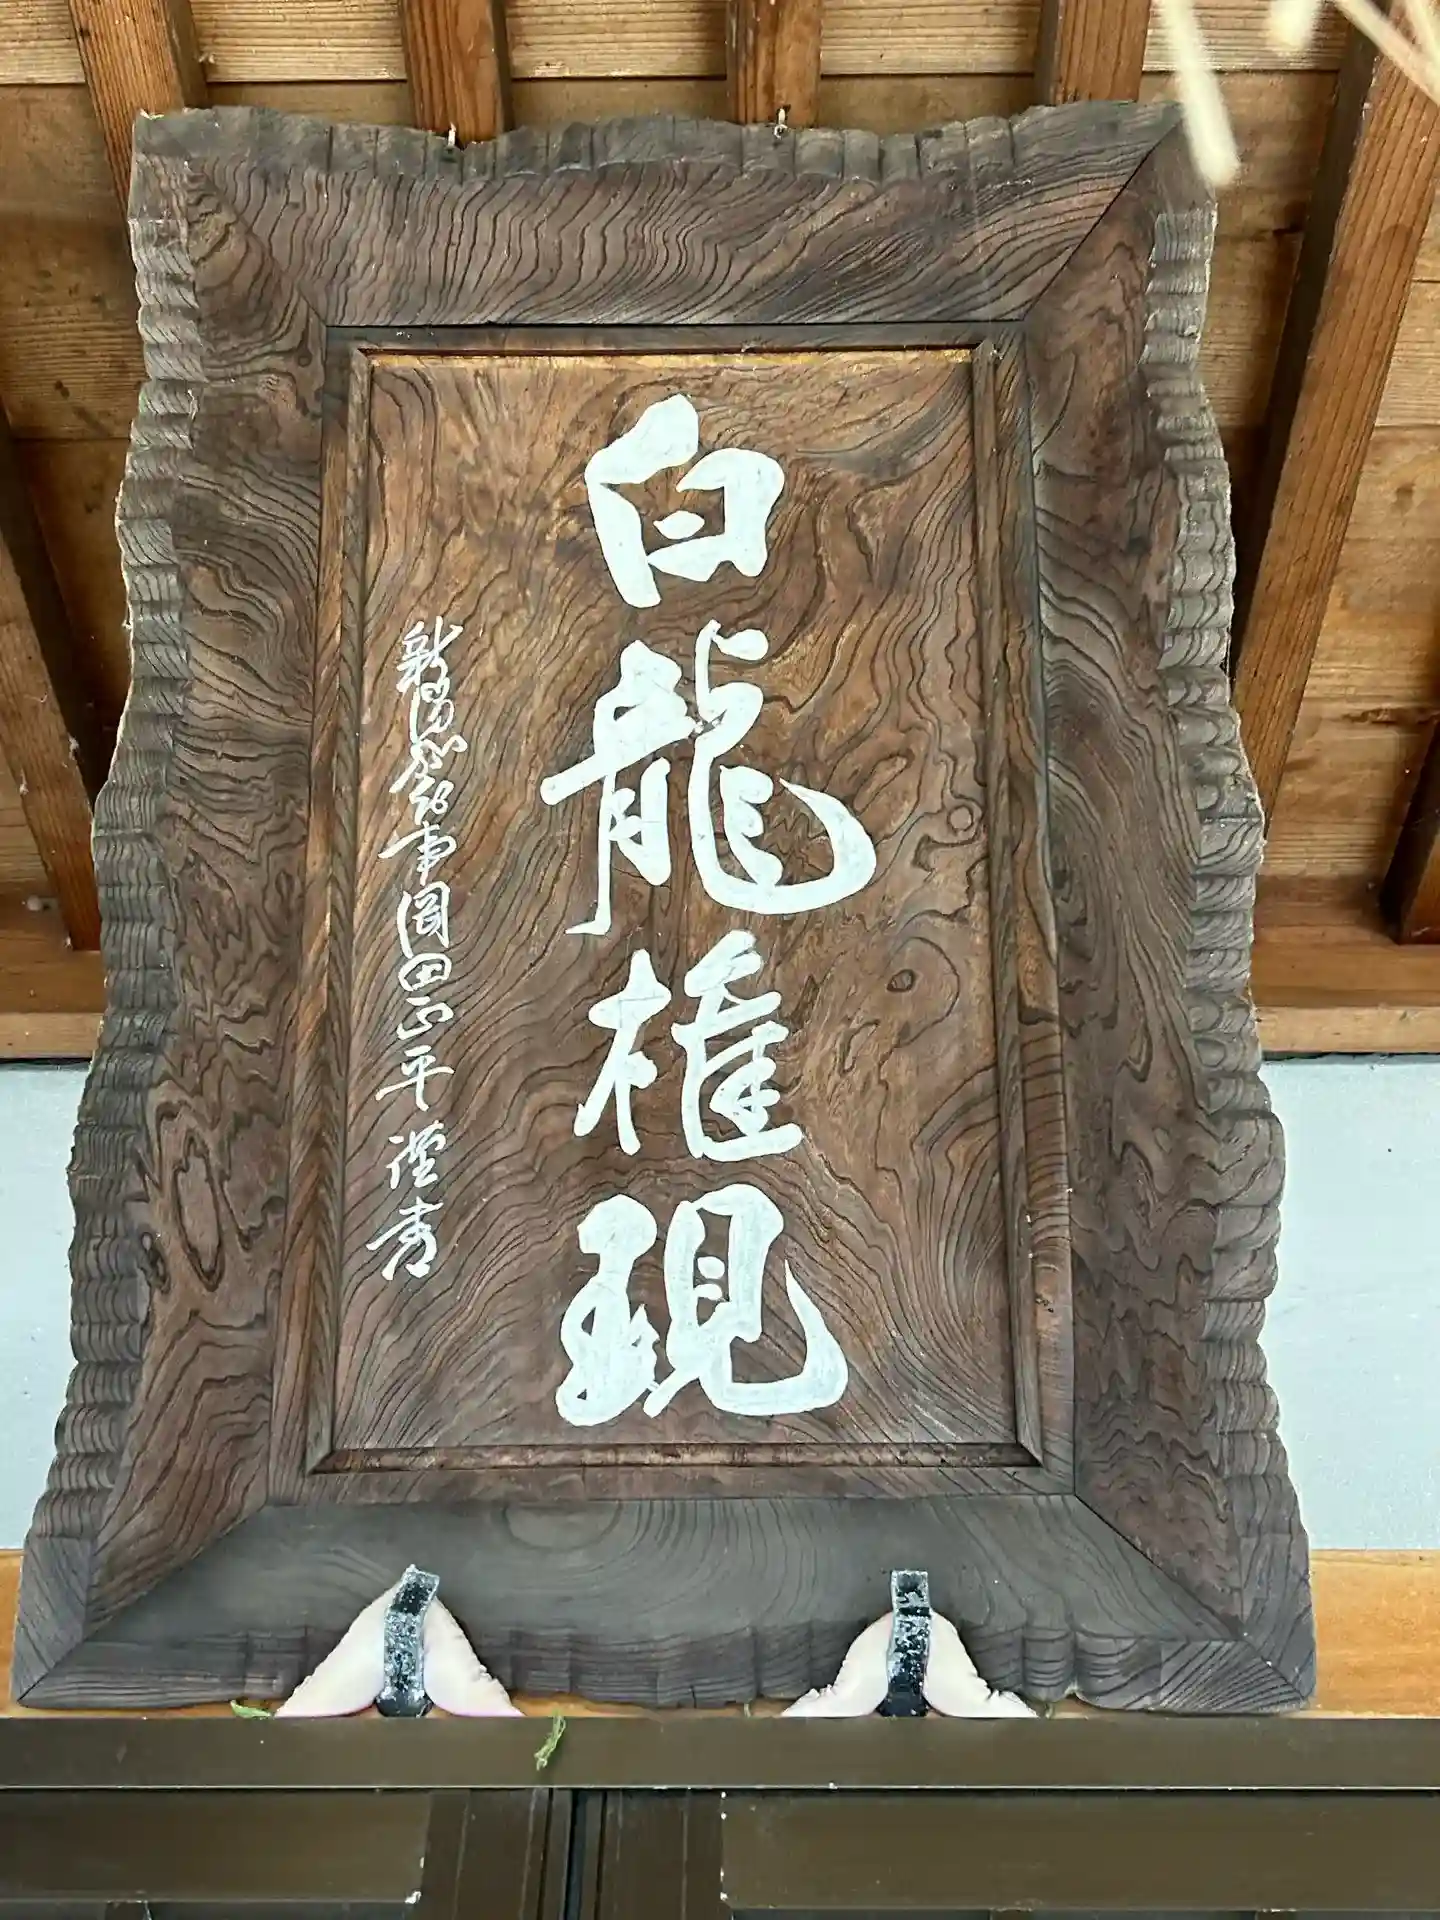 白龍権現
新潟県知事岡田正平謹書